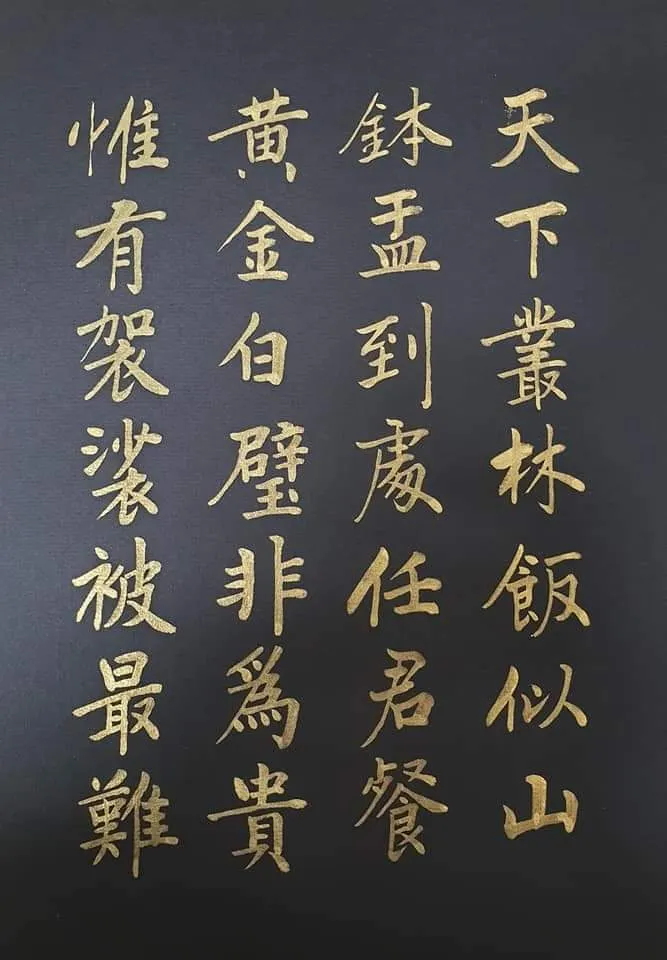 天下叢林飯似山
鉢盂到處任君餐
黄金白璧非為貴
惟有袈裟被最難